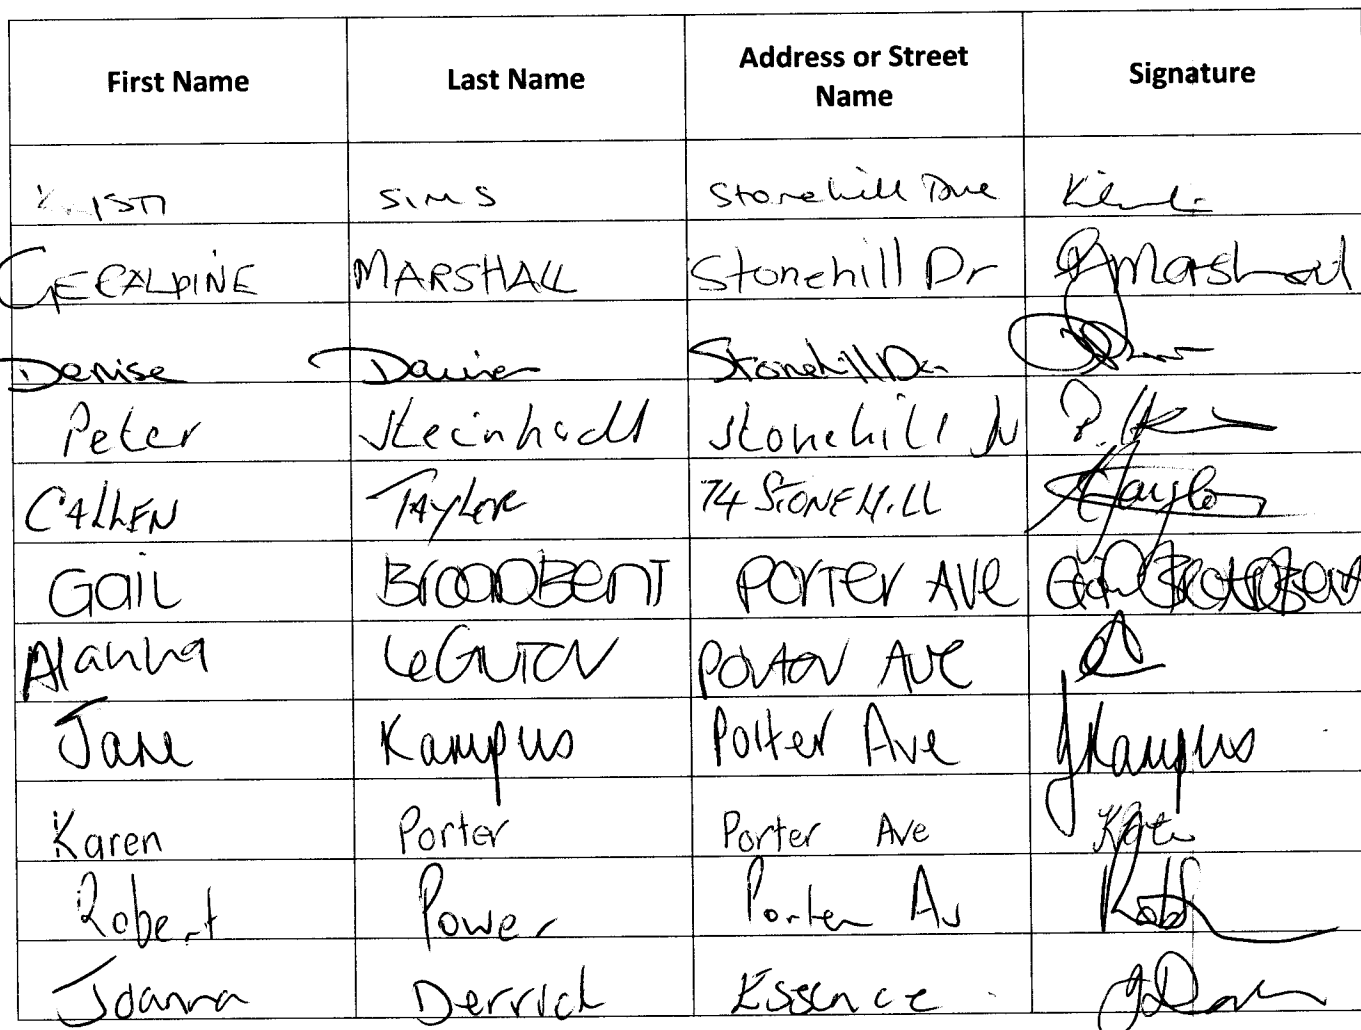 First Name Last Name Address or Street Name Signature
SIMS Stonehill
GERALDINE MARSHALL Stonehill Dr GMarshall
Denise Stonehill Dr
Peter Stonehill
CALLEN TAYLOR 74 STONEHILL Taylor
Gail BROADBENT PORTER AVE Gail Broadbent
Alanna Porter AVE
Jane Kampus Porter Ave JKampus
Karen Porter Porter Ave
Robert Power Porter Av
Joanna Derrick Essence